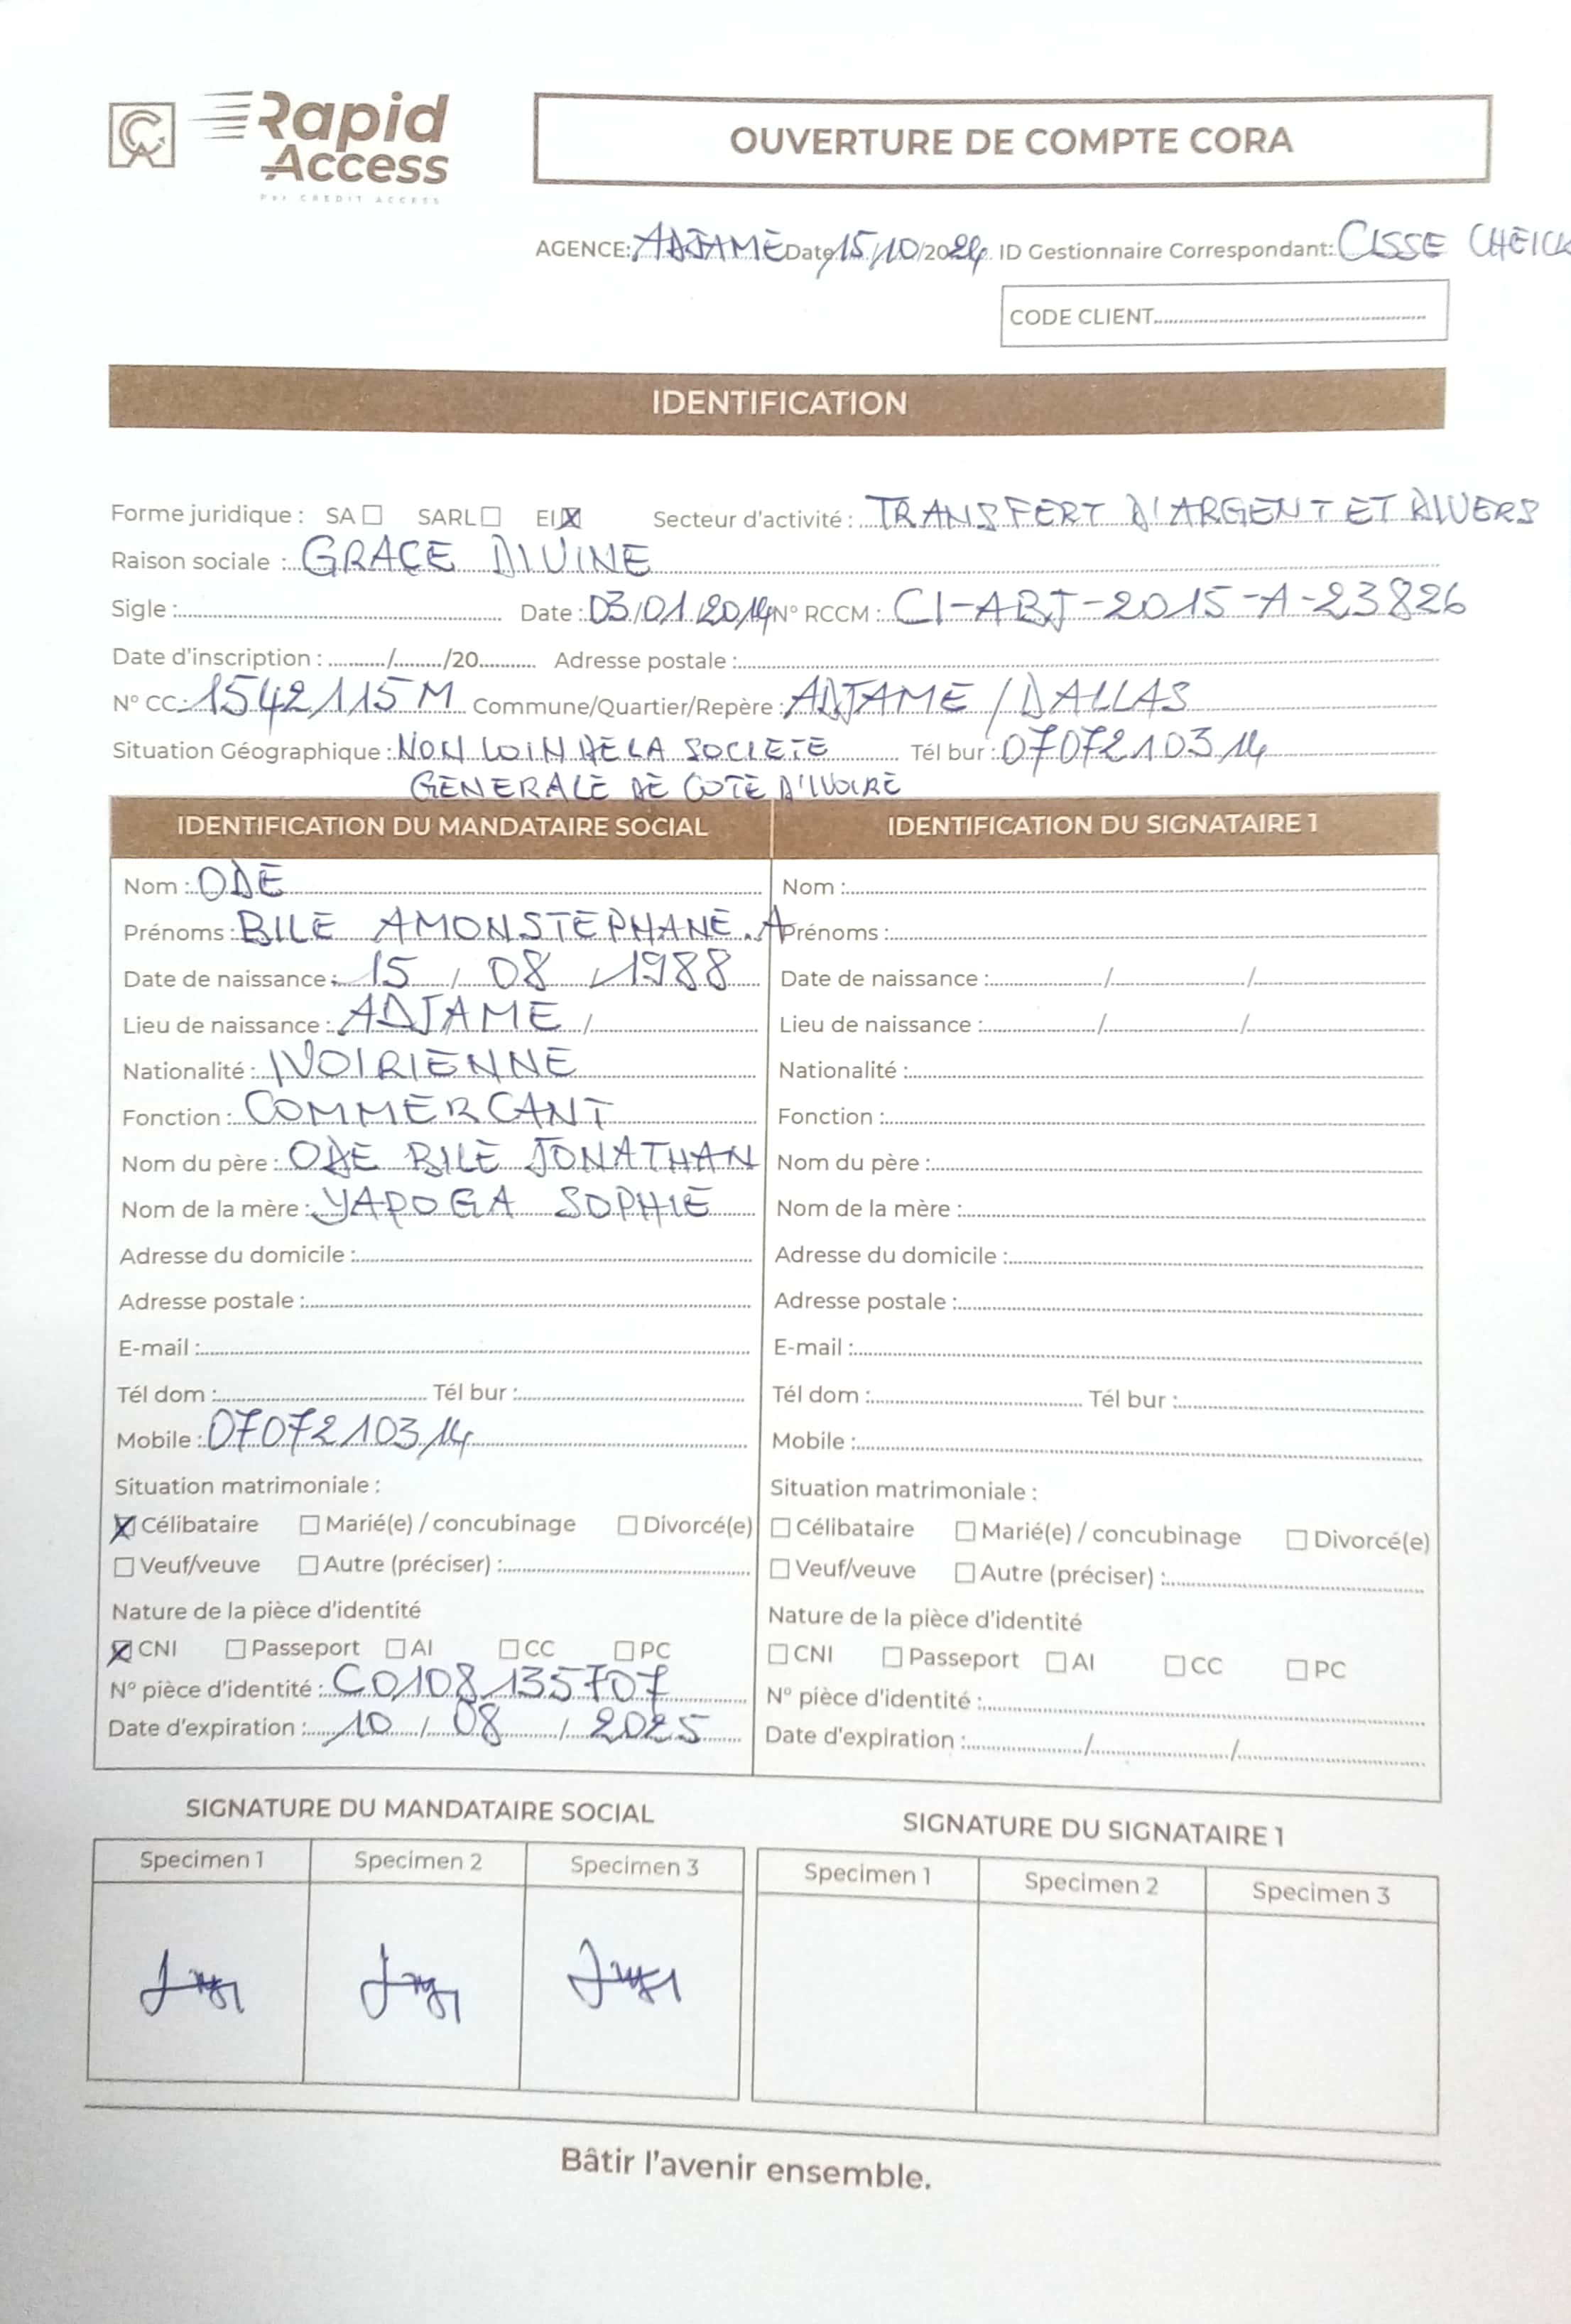 CA Rapid
Access
Par CREDIT ACCESS
OUVERTURE DE COMPTE CORA
AGENCE: ADJAME Date 15/10/2024 ID Gestionnaire Correspondant: CISSE CHEICK
CODE CLIENT
IDENTIFICATION
Forme juridique : SA SARL EI X Secteur d'activité : TRANSFERT D'ARGENT ET DIVERS
Raison sociale : GRACE DIVINE
Sigle : Date : 03/01/2014 N° RCCM : CI-ABJ-2015-A-23826
Date d'inscription : / /20 Adresse postale :
N° CC: 1542115M Commune/Quartier/Repère : ADJAME / DALLAS
Situation Géographique : NON LOIN DE LA SOCIETE Tél bur : 0707210314
GENERALE DE COTE D'IVOIRE
IDENTIFICATION DU MANDATAIRE SOCIAL
Nom : ODE
Prénoms : BILE AMONSTEPHANE.A
Date de naissance : 15 / 08 / 1988
Lieu de naissance : ADJAME /
Nationalité : IVOIRIENNE
Fonction : COMMERCANT
Nom du père : ODE BILE JONATHAN
Nom de la mère : YAPOGA SOPHIE
Adresse du domicile :
Adresse postale :
E-mail :
Tél dom : Tél bur :
Mobile : 0707210314
Situation matrimoniale :
X Célibataire Marié(e) / concubinage Divorcé(e)
Veuf/veuve Autre (préciser) :
Nature de la pièce d'identité
X CNI Passeport AI CC PC
N° pièce d'identité : C0108135707
Date d'expiration : 10 / 08 / 2025
IDENTIFICATION DU SIGNATAIRE 1
Nom :
Prénoms :
Date de naissance : / /
Lieu de naissance : / /
Nationalité :
Fonction :
Nom du père :
Nom de la mère :
Adresse du domicile :
Adresse postale :
E-mail :
Tél dom : Tél bur :
Mobile :
Situation matrimoniale :
Célibataire Marié(e) / concubinage Divorcé(e)
Veuf/veuve Autre (préciser) :
Nature de la pièce d'identité
CNI Passeport AI CC PC
N° pièce d'identité :
Date d'expiration : / /
SIGNATURE DU MANDATAIRE SOCIAL
Specimen 1 Specimen 2 Specimen 3
SIGNATURE DU SIGNATAIRE 1
Specimen 1 Specimen 2 Specimen 3
Bâtir l'avenir ensemble.